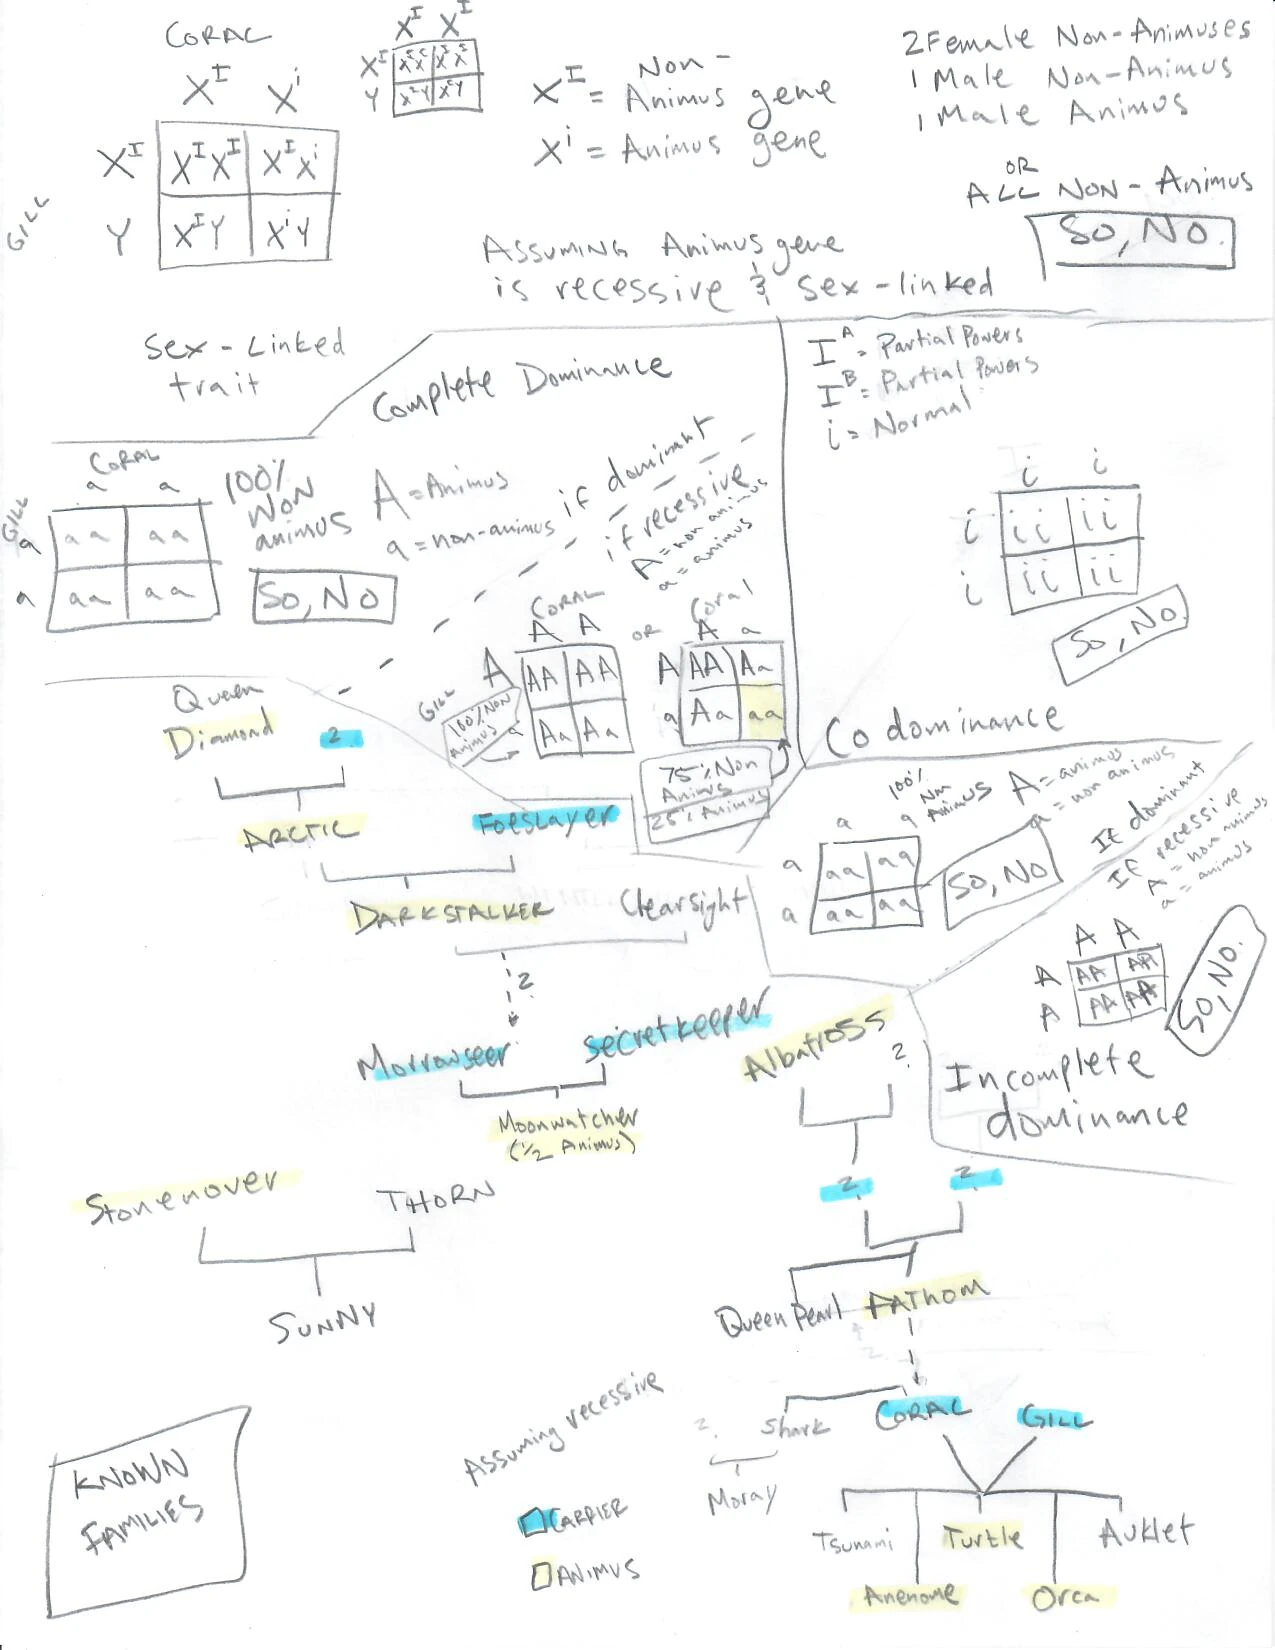 CORAL
X^I X^i
GILL
X^I
Y
X^I X^I
X^I x^i
X^I Y
X^i Y
X^I X^I
X^I
Y
X^I = Non-
Animus gene
X^i = Animus gene
2 Female Non-Animuses
1 Male Non-Animus
1 Male Animus
OR
ALL NON-Animus
So, No.
Assuming Animus gene
is recessive & sex-linked
Sex-Linked
trait
Complete Dominance
CORAL
a a
GILL
a
a
aa aa
aa aa
100%
Non
animus
So, No
A = Animus
a = non-animus
if dominant
if recessive
A = non animus
a = animus
CORAL
A A
GILL
A
a
AA AA
Aa Aa
100% Non
Animus
OR
Coral
A a
A
a
AA Aa
Aa aa
75% Non
Animus
25% Animus
I^A = Partial Powers
I^B = Partial Powers
i = Normal
i i
i
i
ii ii
ii ii
So, No.
Codominance
a a
a
a
aa aa
aa aa
100%
Non
Animus
So, No
A = animus
a = non animus
If dominant
If recessive
A = non animus
a = animus
A A
A
A
AA AA
AA AA
So, No.
Incomplete
dominance
Queen
Diamond ?
ARCTIC Foeslayer
DARKSTALKER Clearsight
?
Morrowseer Secretkeeper
Moonwatcher
(1/2 Animus)
Stonemover THORN
SUNNY
Albatross ?
? ?
Queen Pearl FATHOM
? Shark CORAL GILL
Moray
Tsunami Turtle Auklet
Anenome Orca
KNOWN
FAMILIES
Assuming recessive
CARRIER
ANIMUS